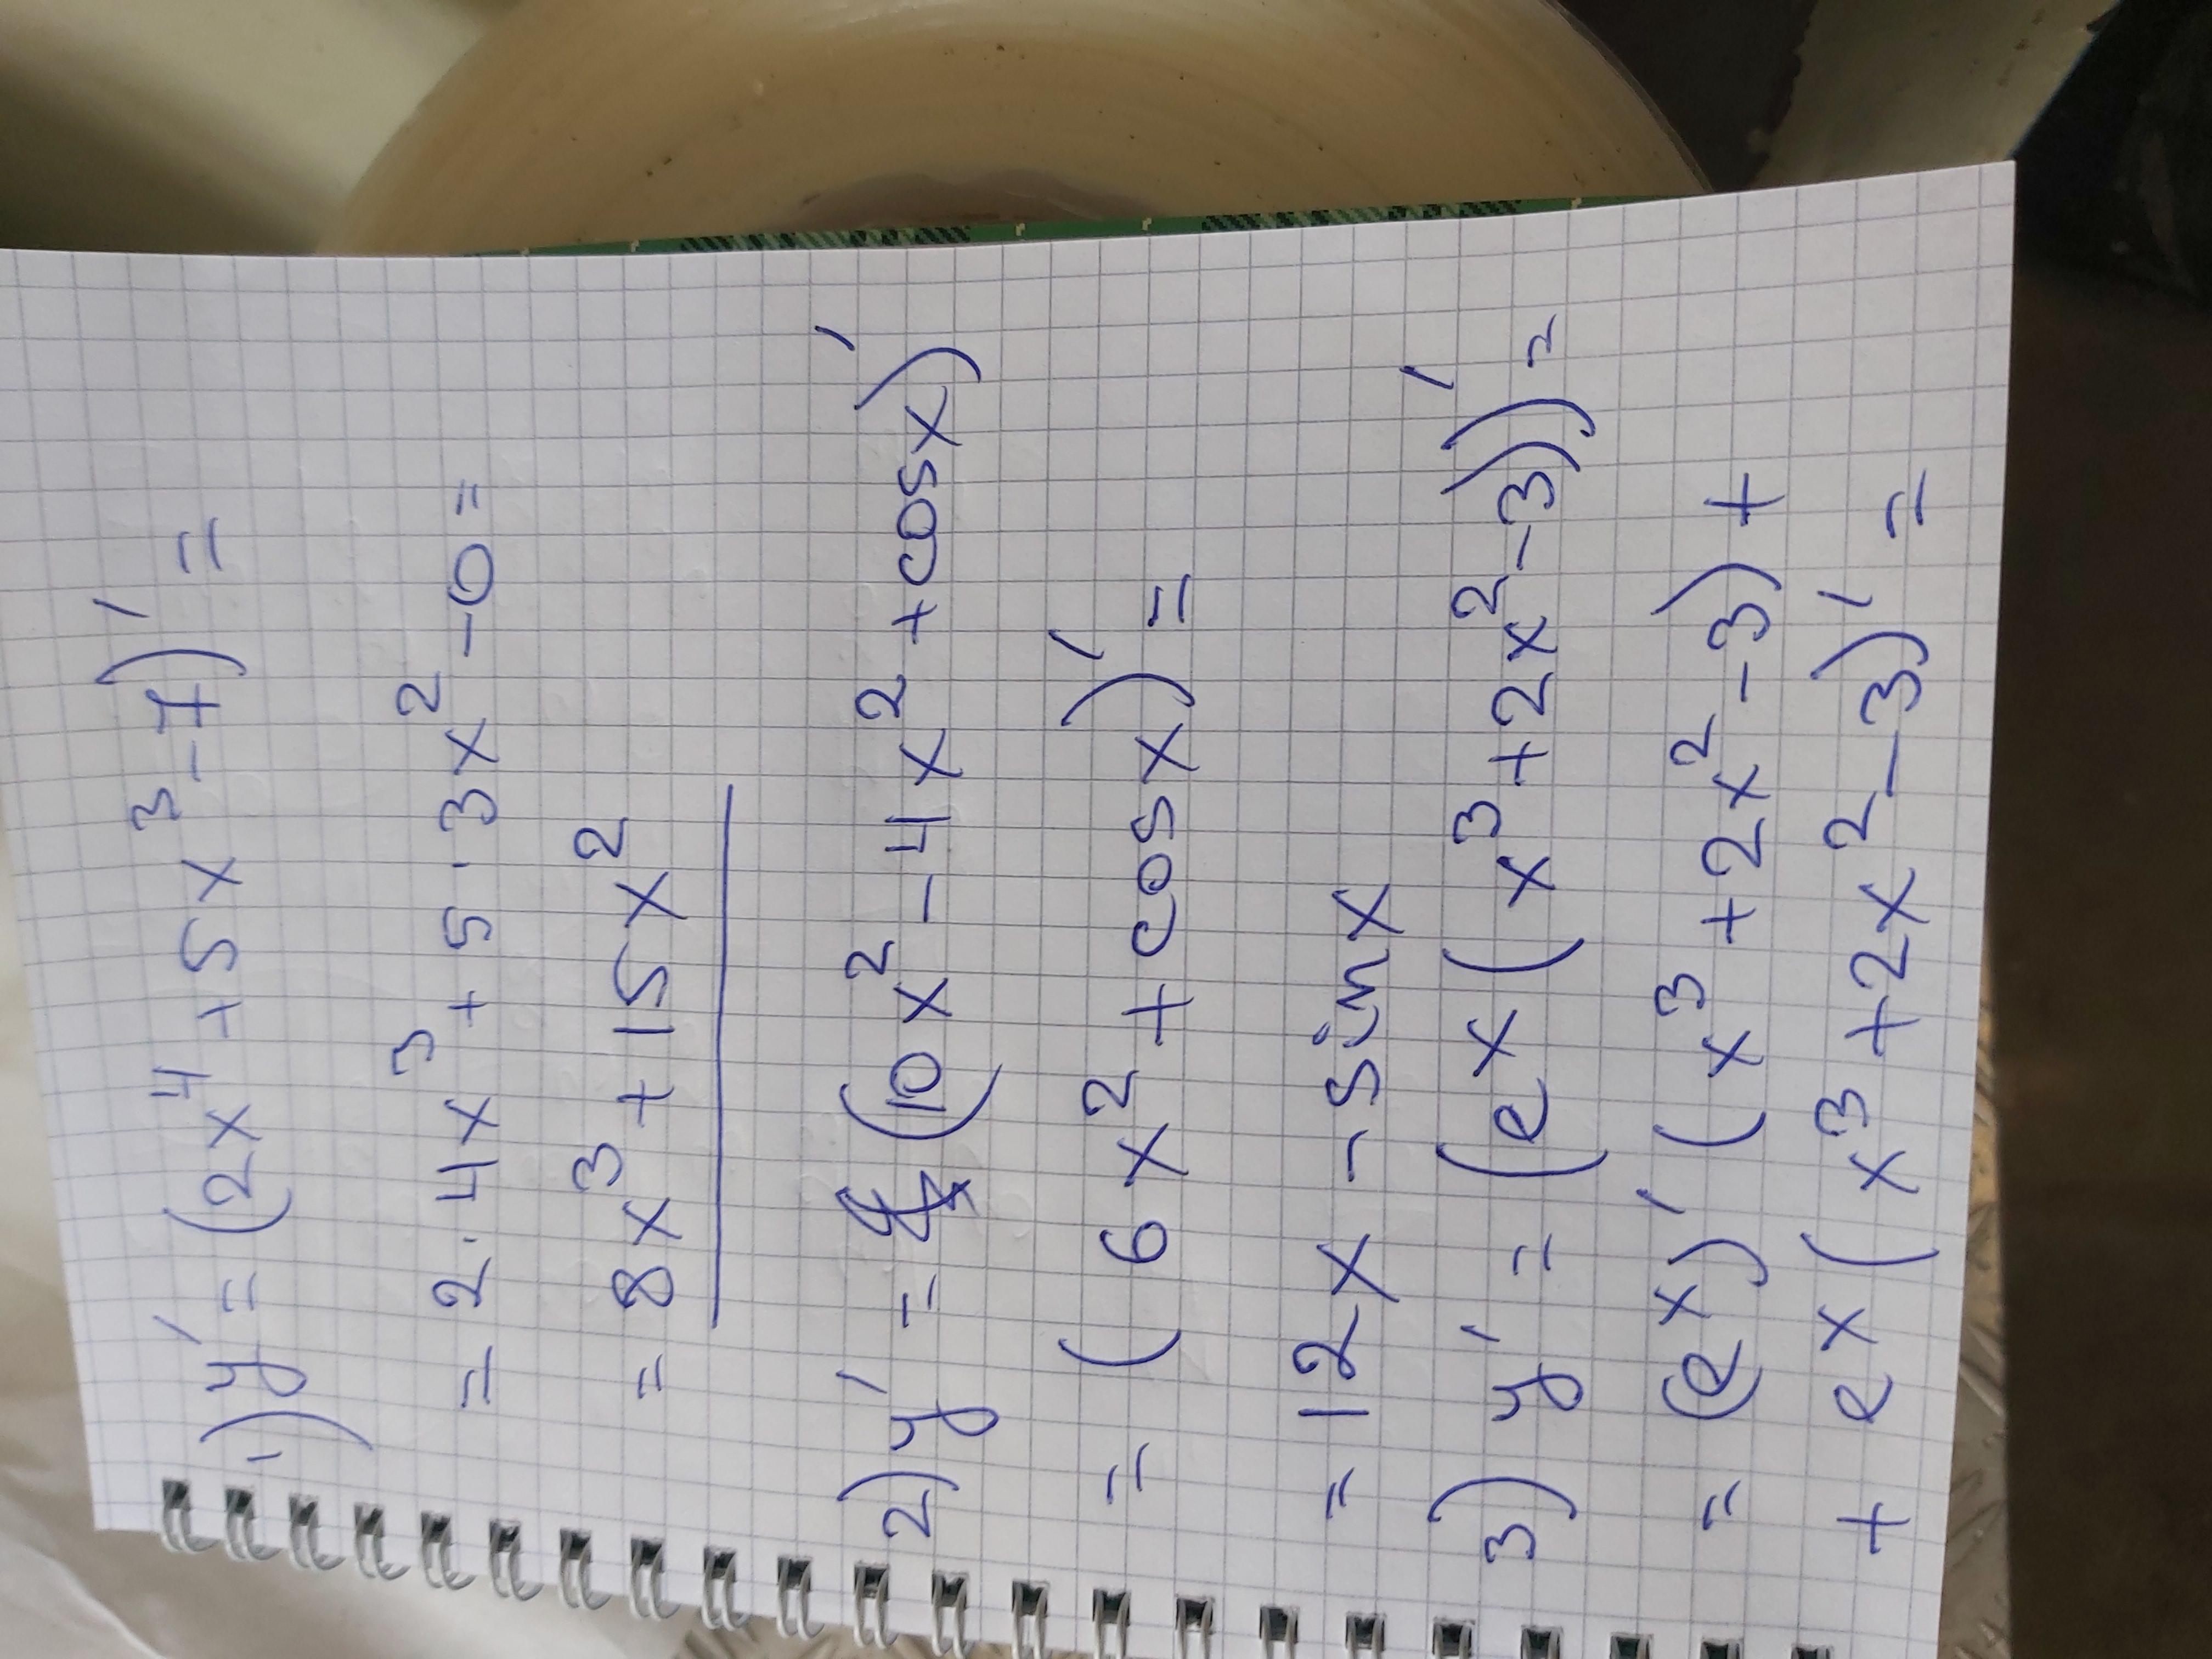 1) y' = (2x⁴ + 5x³ - 7)' =
= 2 · 4x³ + 5 · 3x² - 0 =
= 8x³ + 15x²
2) y' = (10x² - 4x² + cosx)'
= (6x² + cosx)' =
= 12x - sinx
3) y' = (ex (x³ + 2x² - 3))' =
= (eˣ)' (x³ + 2x² - 3) +
+ ex (x³ + 2x² - 3)' =